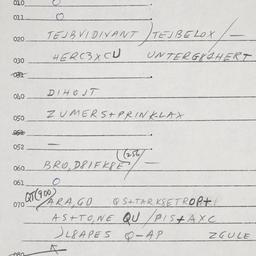 010 O
011 O
020 TEJBVIDIVANT)TEJBELOX/—
030 HERC3XCU UNTERG8ZHERT
040 DIHOJT
050 ZUMERS+PRINKLAX
052 —
060 BRO,D8IFK8E(256)/—
061 O
070 QT(900) ARA,GO QS+TARKSETROP+I
AS+TO,NE QU /PIS+AXC
)L8APES Q-AP ZGULE
080